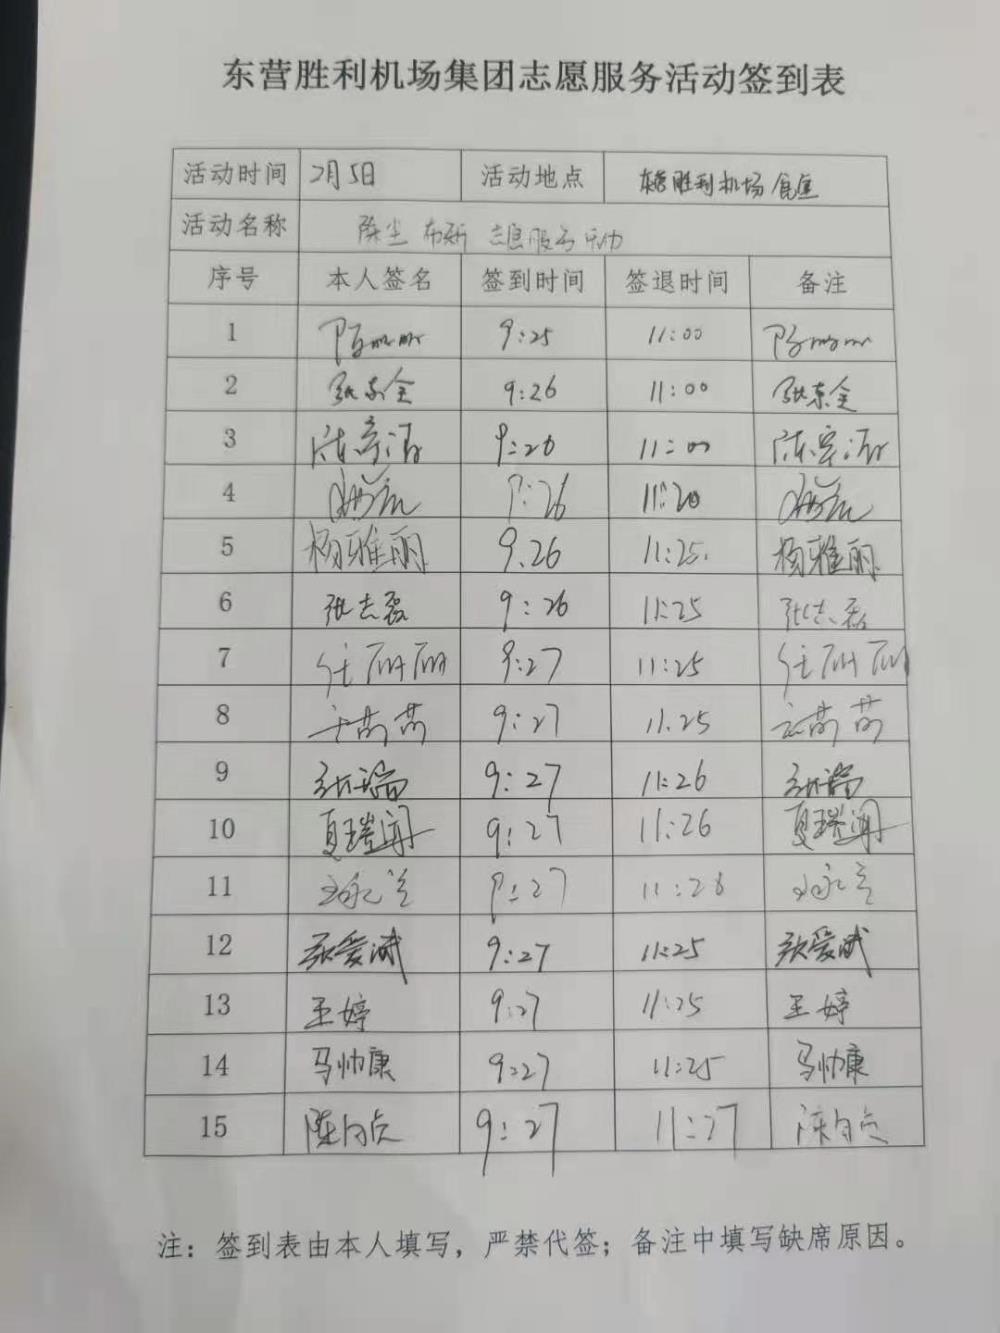 东营胜利机场集团志愿服务活动签到表
活动时间 2月5日 活动地点 东营胜利机场食堂
活动名称 除尘布新 志愿服务活动
序号 本人签名 签到时间 签退时间 备注
1 9:25 11:00
2 张东全 9:26 11:00 张东全
3 9:26 11:00
4 9:26 11:20
5 杨雅丽 9.26 11:25. 杨雅丽
6 张志磊 9:26 11:25 张志磊
7 任丽丽 9:27 11:25 任丽丽
8 9:27 11.25
9 9:27 11:26
10 夏瑞闻 9:27 11:26 夏瑞闻
11 9:27 11:26
12 张爱斌 9:27 11:25 张爱斌
13 王婷 9:27 11:25 王婷
14 马帅康 9:27 11:25 马帅康
15 9:27 11:27
注：签到表由本人填写，严禁代签；备注中填写缺席原因。